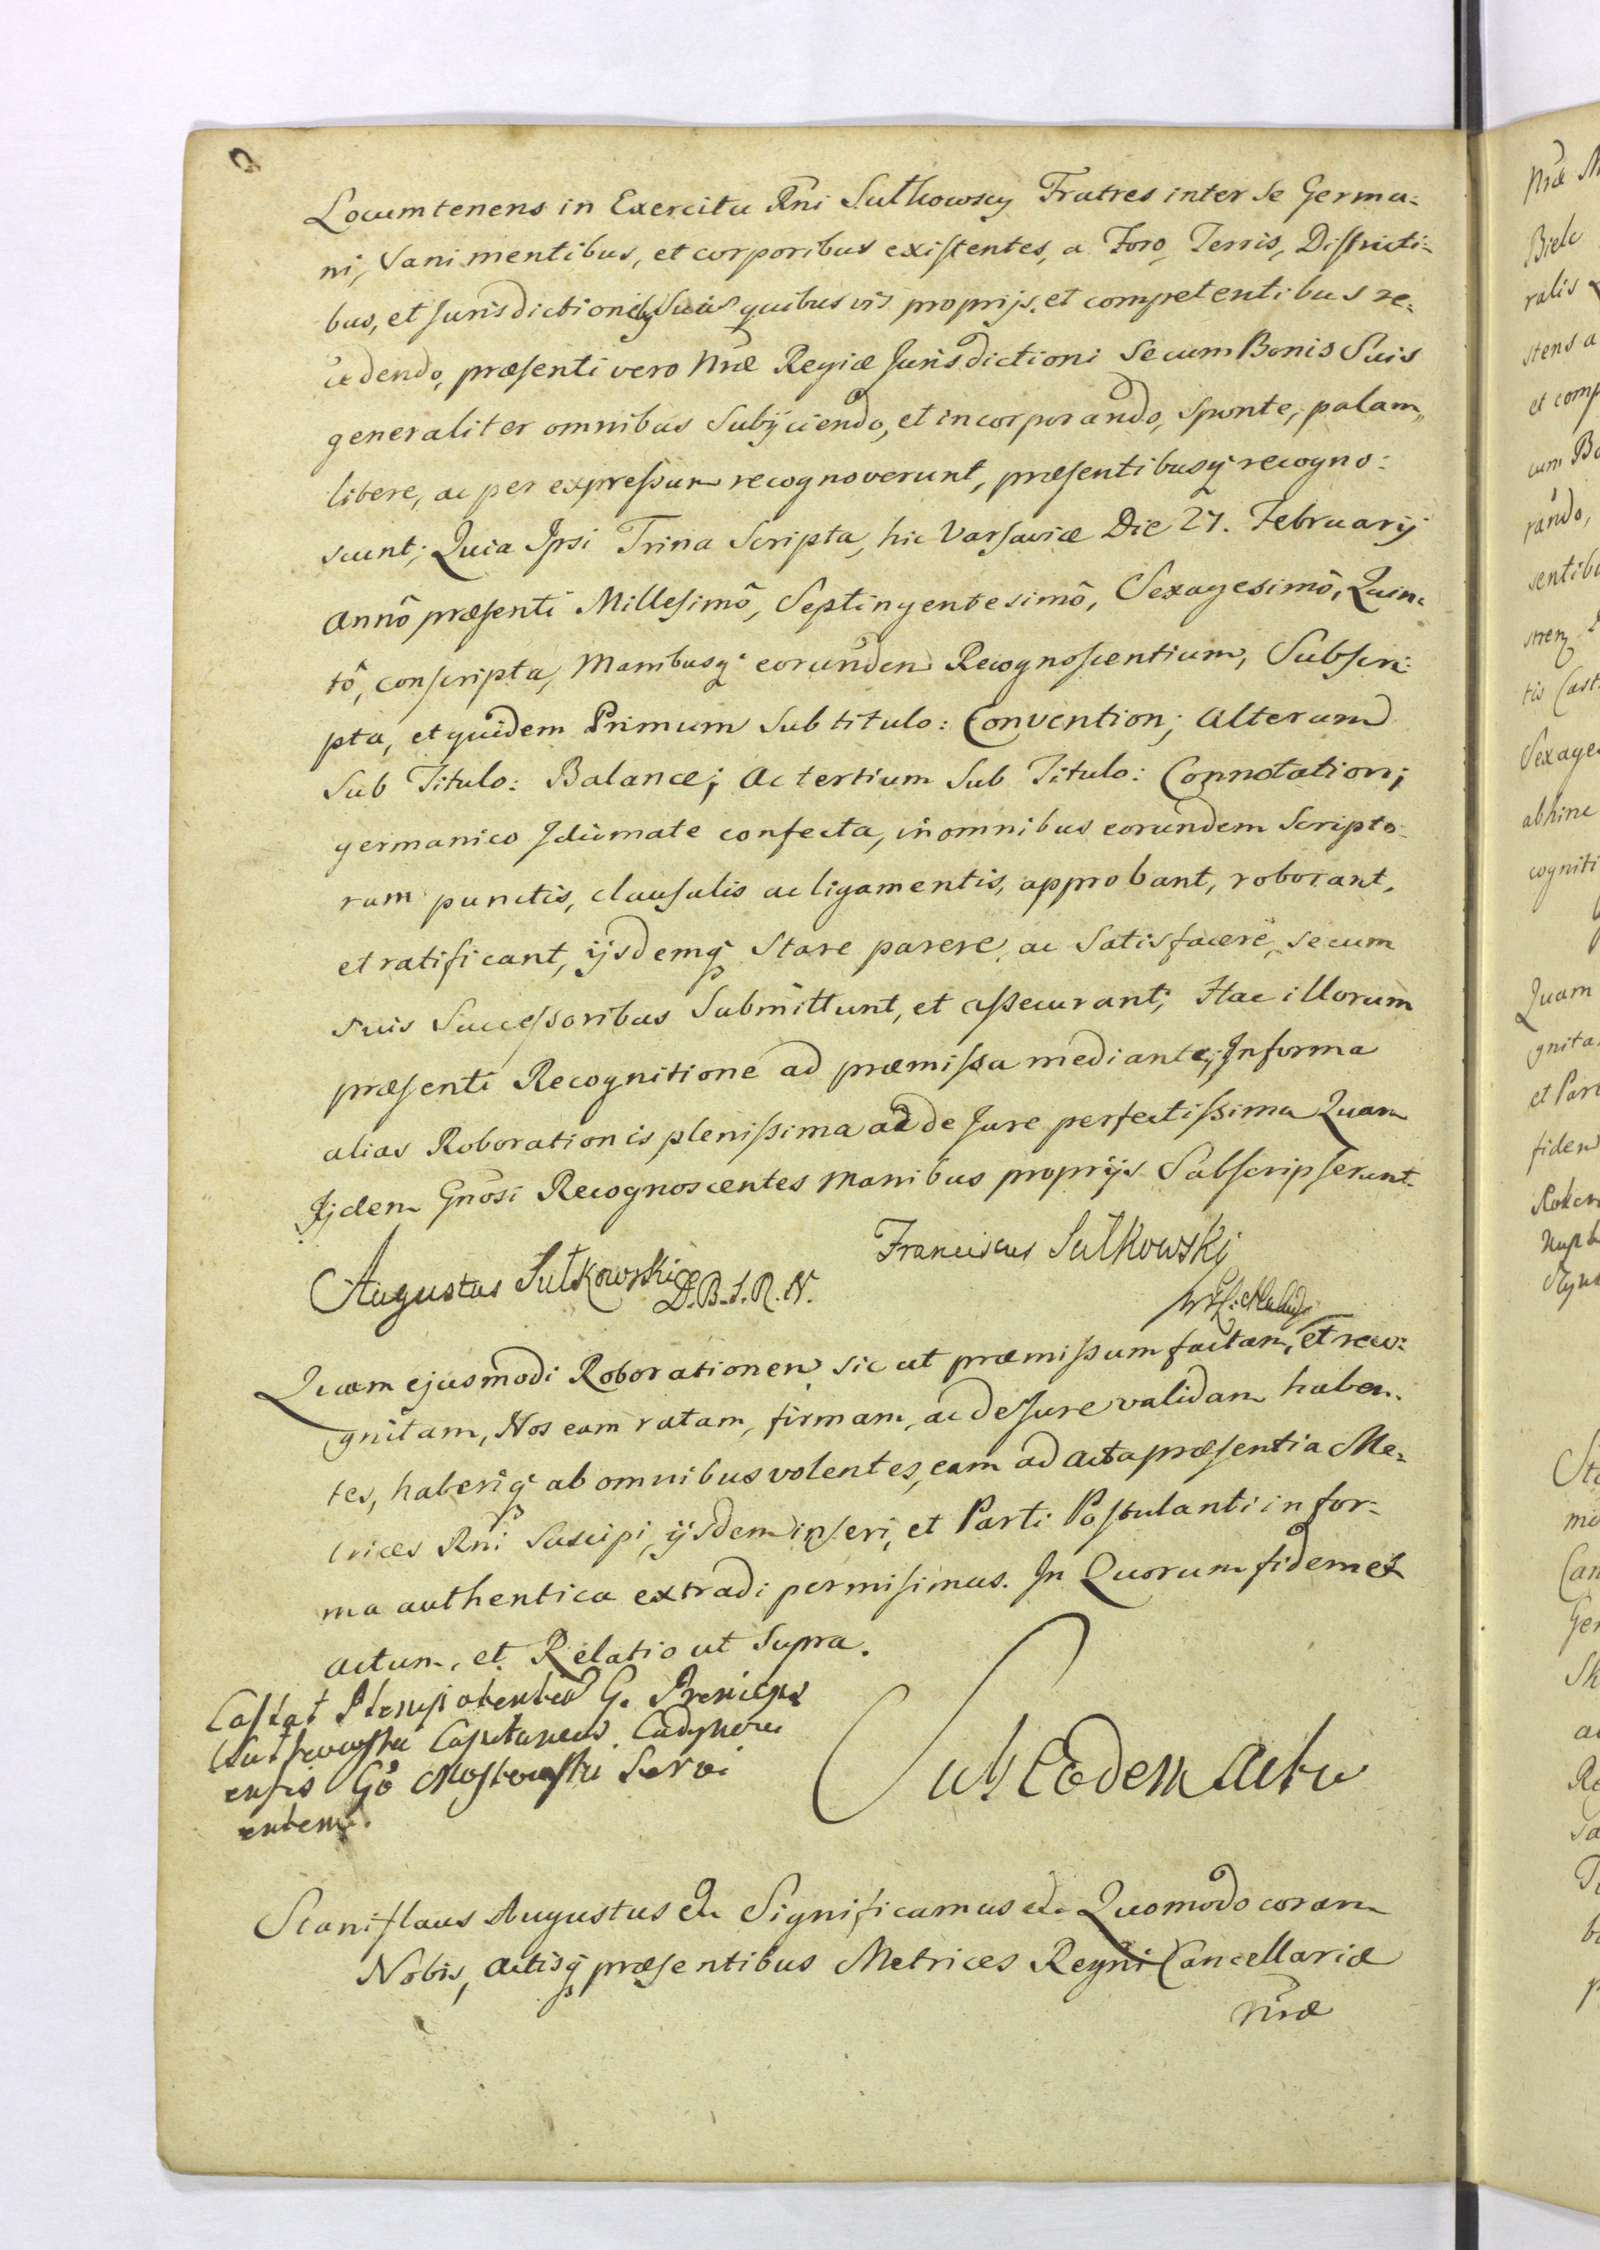 Locumtenens in Exercitu Rñi Sułkowscy Fratres inter Se Germa:
ni, Sani mentibus, et corporibus existentes, a Foro, Terris, Districti:
bus, et Jurisdictionibq Suis quibus vis proprijs, et competentibus re:
cedendo, præsenti vero Nræ Regiæ Jurisdictioni Secum Bonis Suis
generaliter omnibus Subÿciendo, et incorporando, Sponte, palam,
libere, ac per expressum recognoverunt, præsentibusq̃ recogno:
scunt; Quia Ipsi Trina Scripta, hic Varsaviæ Die 27. Februarij
Annô præsenti Millesimô, Septingentesimô, Sexagesimô, Quin:
tô, conscripta, Manibusq̃ eorundem Recognoscentium, Subscri:
pta, et quidem Primum Sub titulo: Convention; Alterum
Sub Titulo: Balance; Ac tertium Sub Titulo: Connotation;
germanico Idiomate confecta, in omnibus eorundem Scripto:
rum punctis, clausulis ac ligamentis, approbant, roborant,
et ratificant, ijsdemq̃ Stare parere, ac Satisfacere, Secum
Suis Successoribus Submittunt, et assecurant; Hac illorum
præsenti Recognitione ad præmissa mediante; In forma
alias Roborationis plenissima ac de Jure perfectissima Quam
Ijdem Gnôsi Recognoscentes Manibus proprijs Subscripserunt.
Franciscus Sułkowski
Augustus Sułkowski D.B.S.R.N.
Quam ejusmodi Roborationem sic ut præmissum factam, et reco:
gnitam, Nos eam ratam, firmam, ac de Jure validam haben:
tes, haberiq̃ ab omnibus volentes, eam ad Acta præsentia Me:
trices Rñi Suscipi, ijsdem inseri, et Parti Postulanti in for:
ma authentica extradi permisimus. In Quorum fidem et
Actum, et Relatio ut Supra.
Sub Eodem Actu
Stanislaus Augustus &c Significamus &c Quomodo coram
Nobis, Actisq̃ præsentibus Metrices Regni Cancellariæ
Nræ